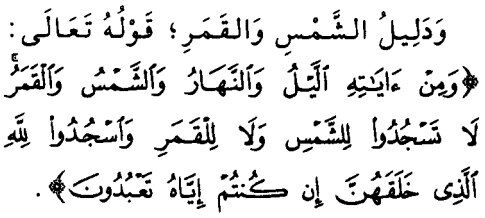 وَدَلِيلُ الشَّمْسِ وَالقَمَرِ؛ قَوْلُهُ تَعَالَى:
﴿وَمِنْ ءَايَٰتِهِ ٱلَّيْلُ وَٱلنَّهَارُ وَٱلشَّمْسُ وَٱلْقَمَرُۚ
لَا تَسْجُدُوا۟ لِلشَّمْسِ وَلَا لِلْقَمَرِ وَٱسْجُدُوا۟ لِلَّهِ
ٱلَّذِى خَلَقَهُنَّ إِن كُنتُمْ إِيَّاهُ تَعْبُدُونَ﴾.